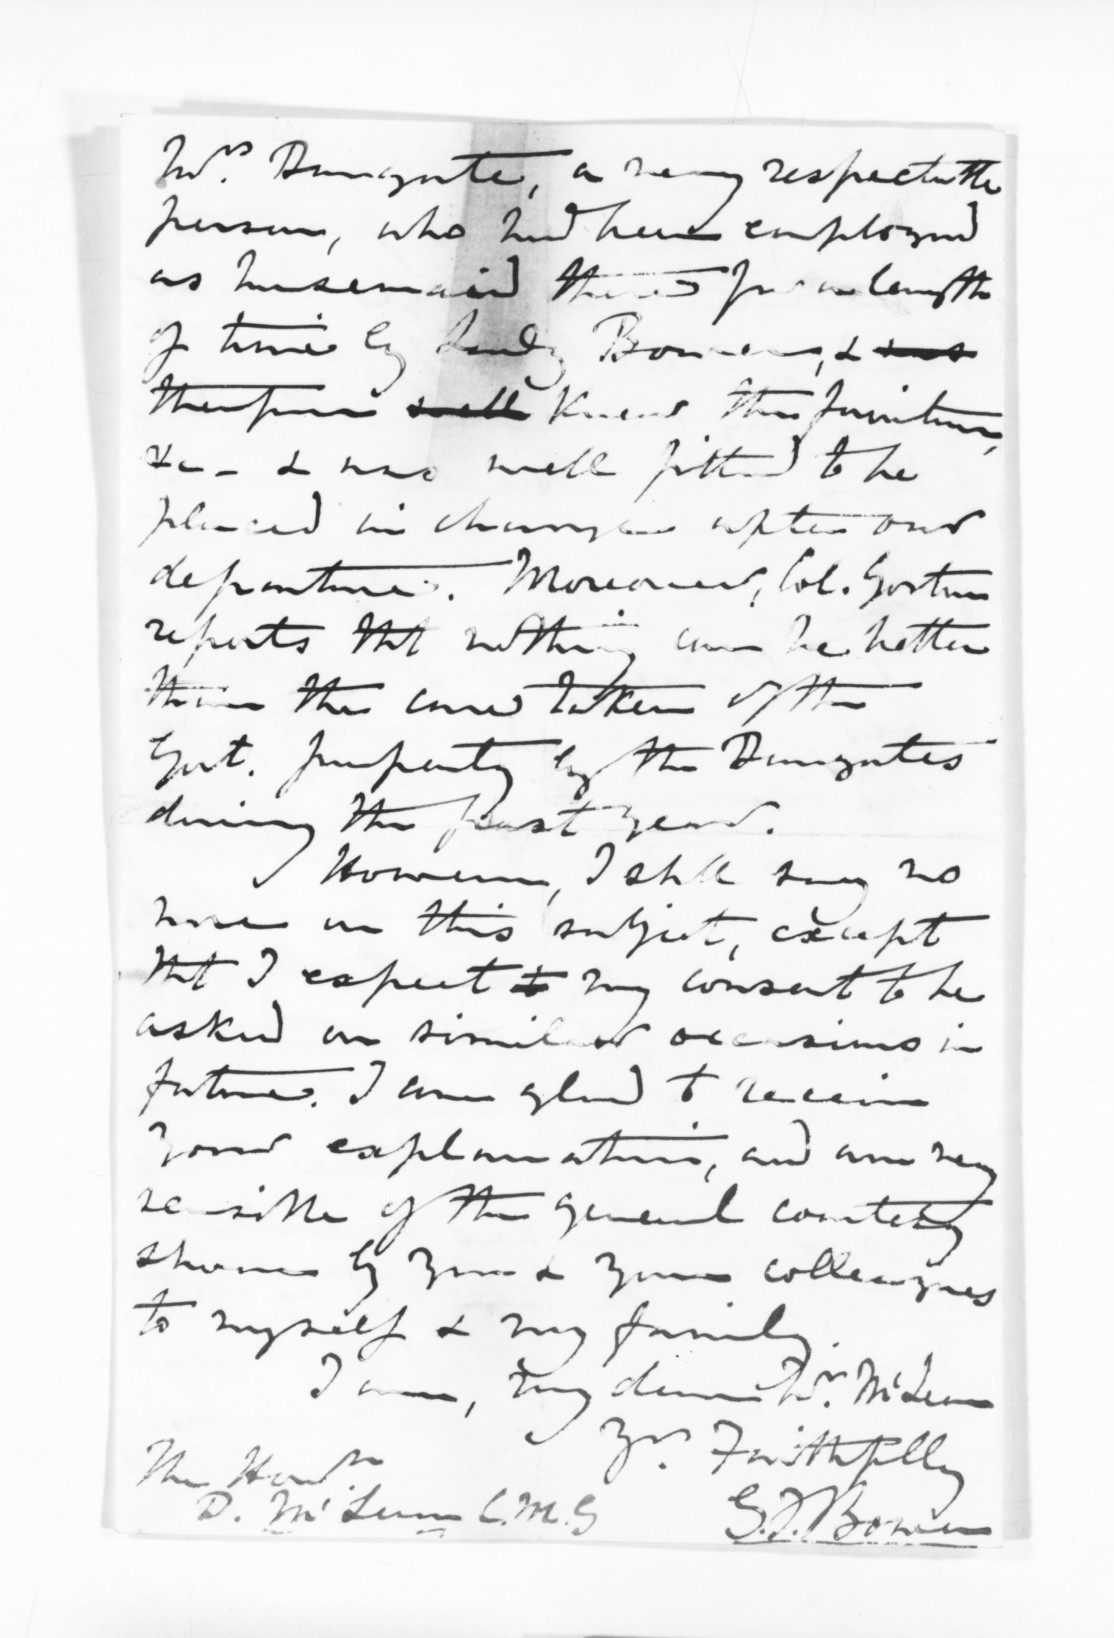 Mrs. Bungate, a very respectable
person, who had been employed
as housemaid there for a length
of time by Lady Bowen, & was
therefore well knew the furniture,
&c - & was well fitted to be
placed in charge after our
departure. Moreover, Col. Gorton
reports tht nothing can be better
than the care taken of the
Govt. property by the Bungates
during the past year.
However, I shll say no
more on this subject, except
tht I expect to my consent to be
asked on similar occasions in
future. I am glad to receive
your explanation, and am very
sensible of the general courtesy
shown by you & your colleagues
to myself & my family.
I am, my dear Mr. McLean
Yrs. Faithfully
G.F. Bowen
The Honble
D. McLean C.M.G